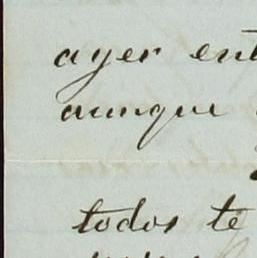 ayer ent
aunque
todos te